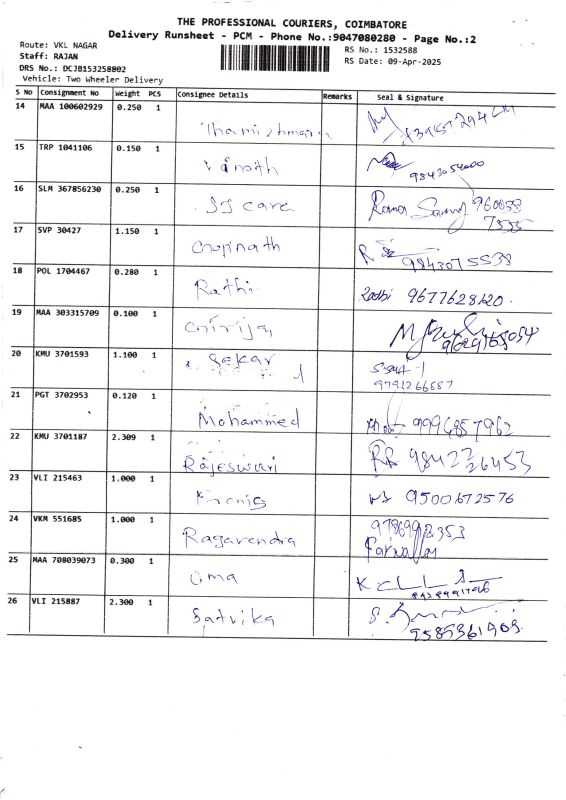 THE PROFESSIONAL COURIERS, COIMBATORE
Delivery Runsheet - PCM - Phone No.:9047080280 - Page No.:2
Route: VKL NAGAR
Staff: RAJAN
DRS No.: DCJB153258802
Vehicle: Two Wheeler Delivery
RS No.: 1532588
RS Date: 09-Apr-2025
S No Consignment No Weight PCS Consignee Details Remarks Seal & Signature
14 MAA 100602929 0.250 1
15 TRP 1041106 0.150 1 Vinoth 9843054000
16 SLM 367856230 0.250 1 SJ care 960038
7535
17 SVP 30427 1.150 1 Gopinath 9843075538
18 POL 1704467 0.280 1 Rathi 9677628420
19 MAA 303315709 0.100 1 Girija
20 KMU 3701593 1.100 1 Sekar
9791266887
21 PGT 3702953 0.120 1 Mohammed 9994857962
22 KMU 3701187 2.309 1 Rajeswari 9842226453
23 VLI 215463 1.000 1 9500672576
24 VKM 551685 1.000 1 Ragavendra
25 MAA 708039073 0.300 1 Uma
26 VLI 215887 2.300 1 Satvika
9585361903